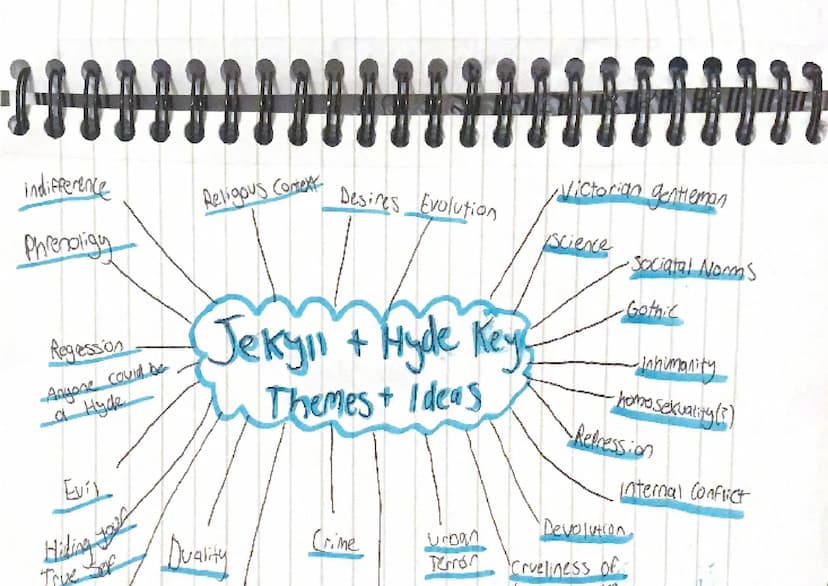 indifference
Religous Context
Desires
Evolution
Victorian gentleman
Phrenoligy
Science
Sociatal Norms
Gothic
Jekyll + Hyde Key
Themes + Ideas
Regression
Anyone could be
a Hyde
Inhumanity
homosexuality(?)
Repression
Evil
Internal Conflict
Hiding your
True Self
Duality
Crime
Urban
Terror
Devolution
Crueliness of